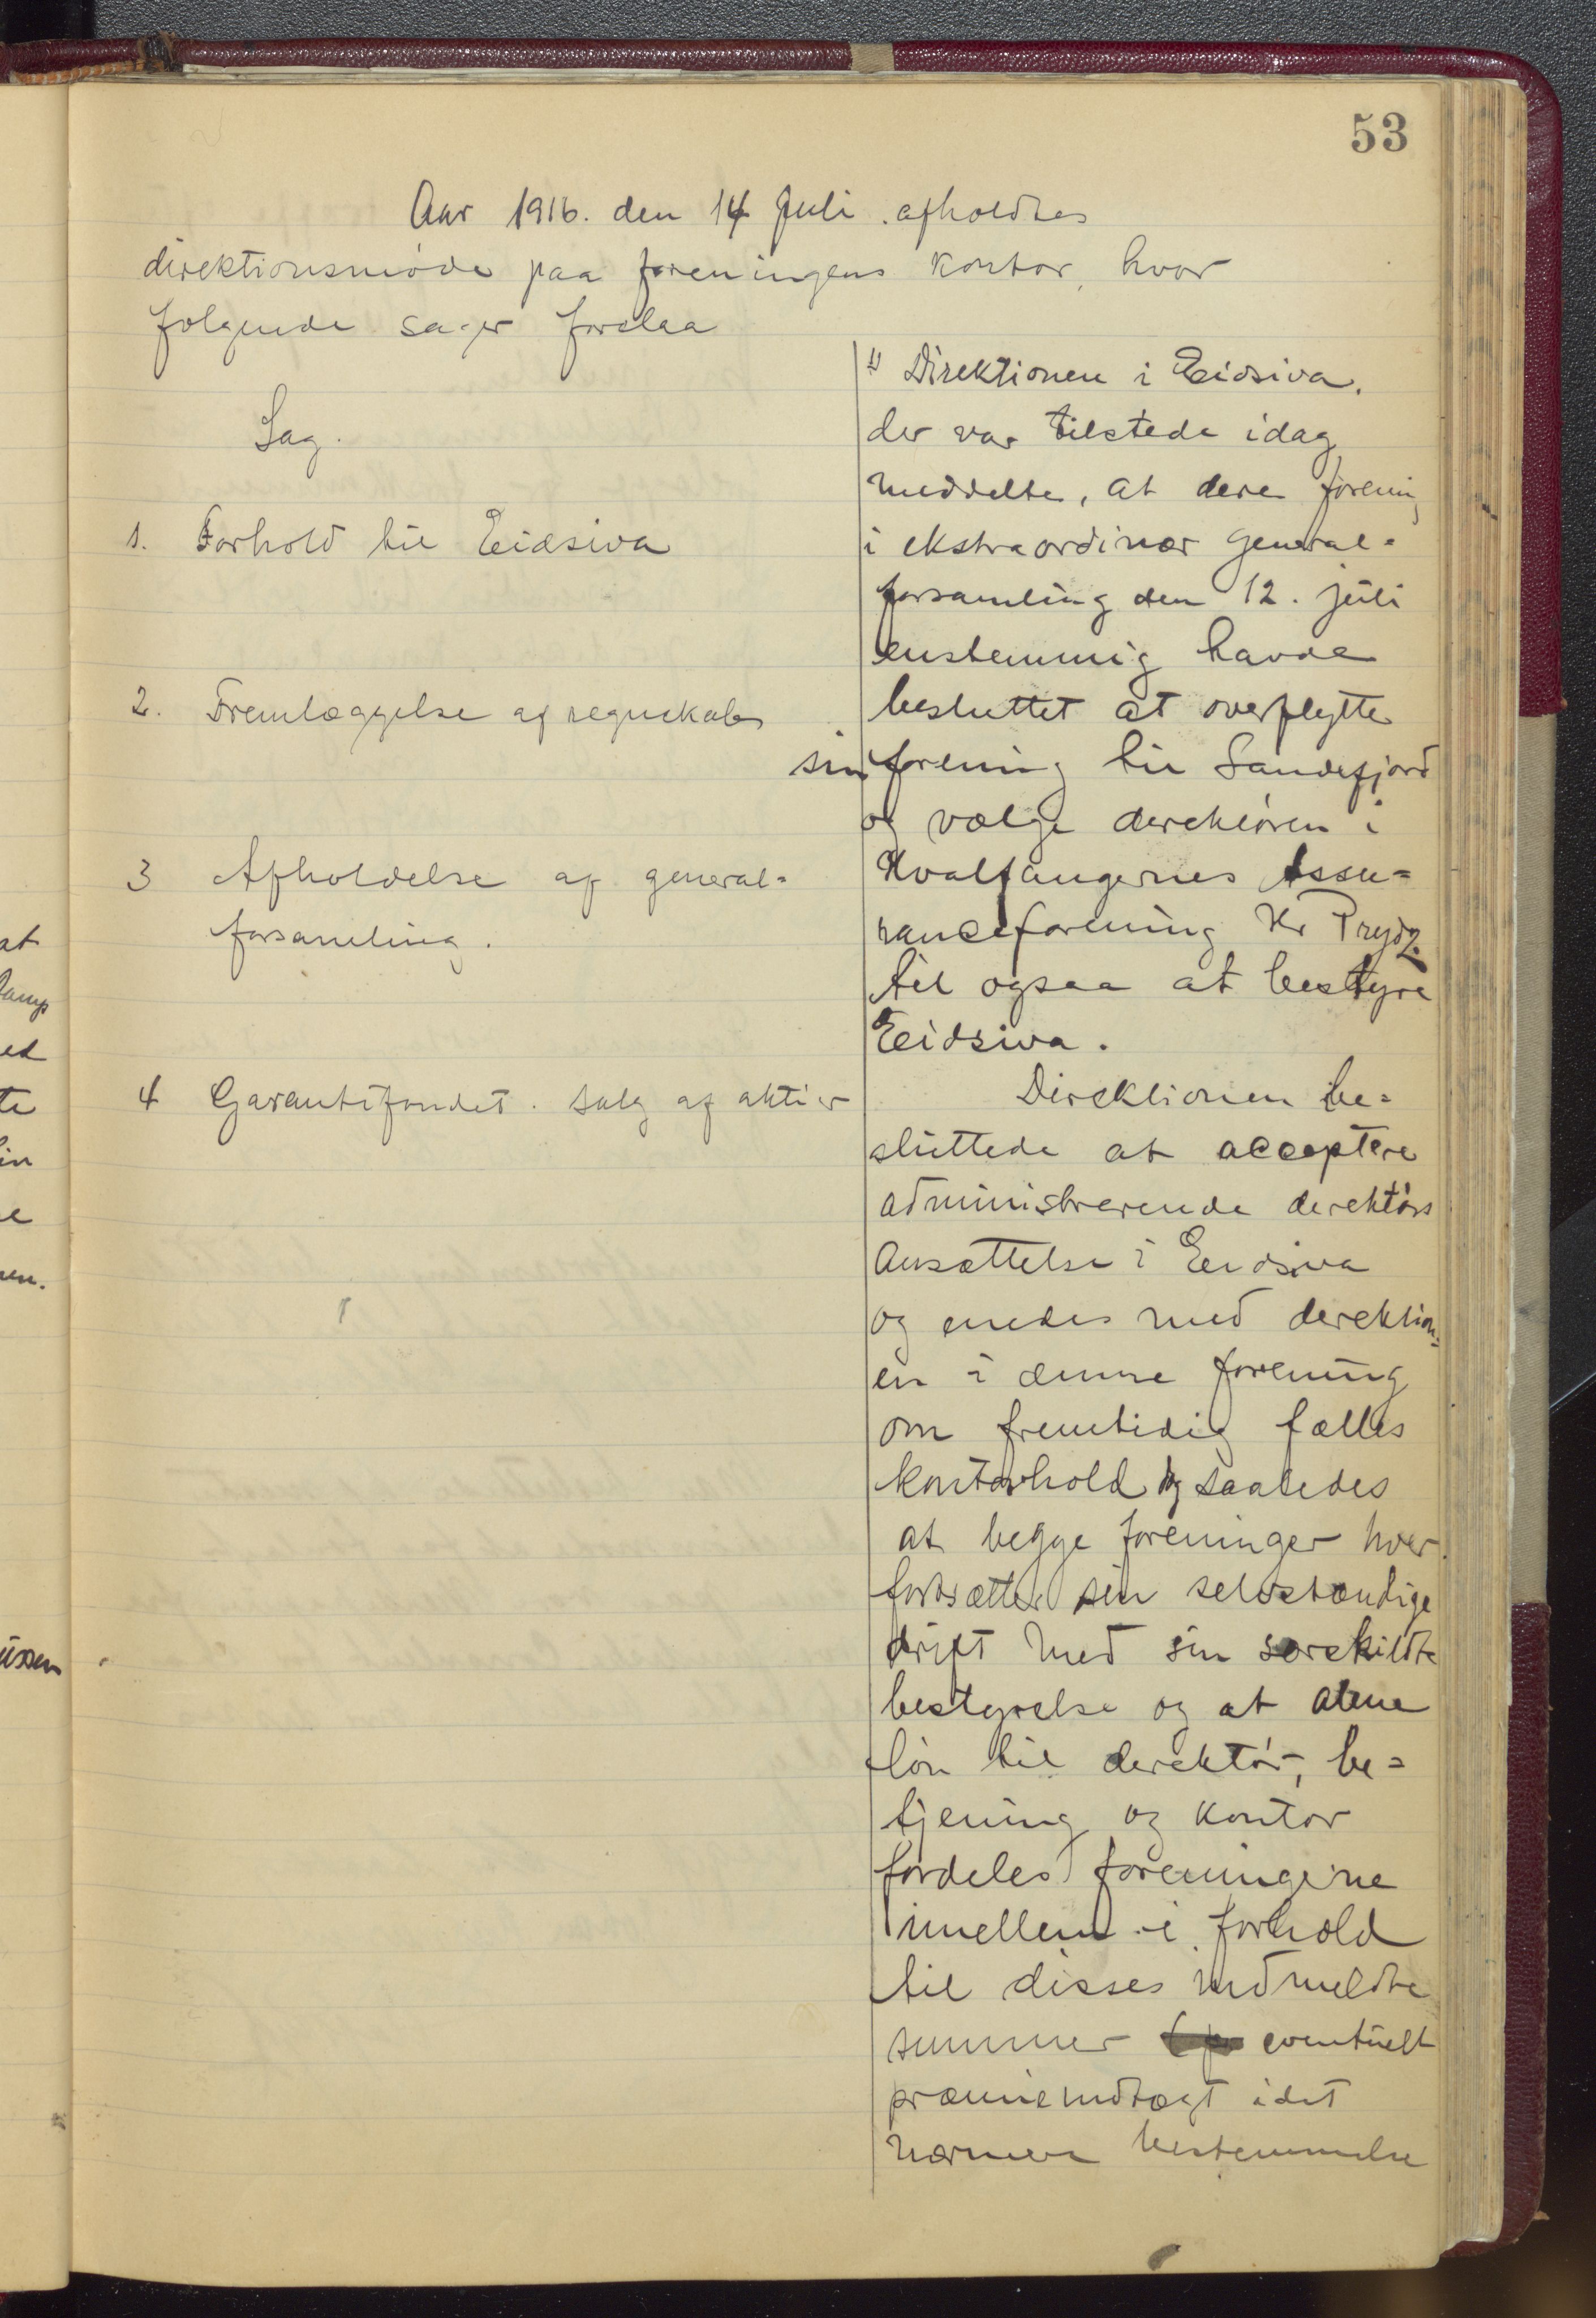 53
Aar 1916. den 14 Juli. afholdtes
direktionsmøde paa foreningens kontor, hvor
følgende sager forelaa
Sag.
1. Forhold til Eidsiva
2. Fremlæggelse af regnskab
3 Afholdelse af general=
forsamling.
4 Garantifondet. salg af aktier
1) Direktionen i Eidsiva.
der var tilstede idag
meddelte, at dere forening
i ekstraordinær general=
forsamling den 12. juli
enstemmig havde
besluttet at overflytte
sin forening til Sandefjord
og vælge derektøren i
Hvalfangernes Assu=
ranceforening Hr Prydz
til ogsaa at bestyre
Eidsiva.
Direktionen be=
sluttede at acceptere
administrerende derektørs
Ansættelse i Eidsiva
og enedes med derektion=
en i denne forening
om fremtidig fælles
kontorhold og saaledes
at begge foreninger hver
fortsætter sin selvstændige
drift med sin særskildte
bestyrelse og at alene
løn til derektør, be=
tjening og kontor
fordeles foreningerne
imellem i forhold
til disses indmeldte
summer eventuelt
præmieindtægt idet
nærmere bestemmelse
at
ed
te
in
e
en.
ussen